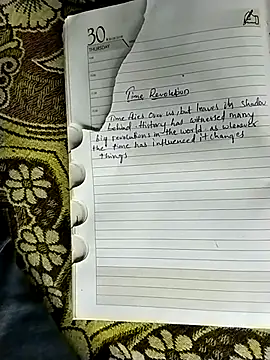 30
THURSDAY
Time Revolution
Time flies over us, but leaves its shadow
behind. History has witnessed many
big revolutions in the world as whenever
the time has influenced it changes
things